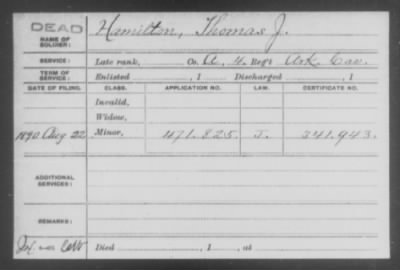 DEAD
NAME OF SOLDIER: Hamilton, Thomas J.
SERVICE: Late rank, Co. A, 4 Reg't Ark Cav.
TERM OF SERVICE: Enlisted , 1 Discharged , 1
DATE OF FILING. CLASS. APPLICATION NO. LAW. CERTIFICATE NO.
Invalid,
Widow,
1890 Aug 22 Minor, 471.825 J. 341.943.
ADDITIONAL SERVICES:
REMARKS:
Died , 1 , at